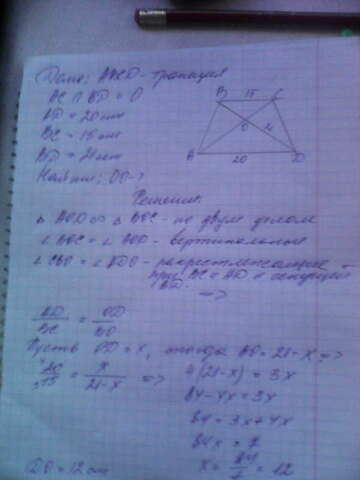 Дано: ABCD - трапеция
AC ∩ BD = O
AD = 20 см
BC = 15 см
BD = 21 см
Найти: OD - ?
B 15 C
O 21
A 20 D
Решение:
△ AOD ∞ △ BOC - по двум углам
∠ BOC = ∠ AOD - вертикальные
∠ CBO = ∠ ADO - накрестлежащие
при BC ∥ AD и секущей
BD. =>
AD/BC = OD/BO
Пусть OD = x, тогда BO = 21 - x =>
20/15 = x/21-x => 4(21-x) = 3x
84 - 4x = 3x
84 = 3x + 4x
84x = 7
x = 84/7 = 12
OD = 12 см